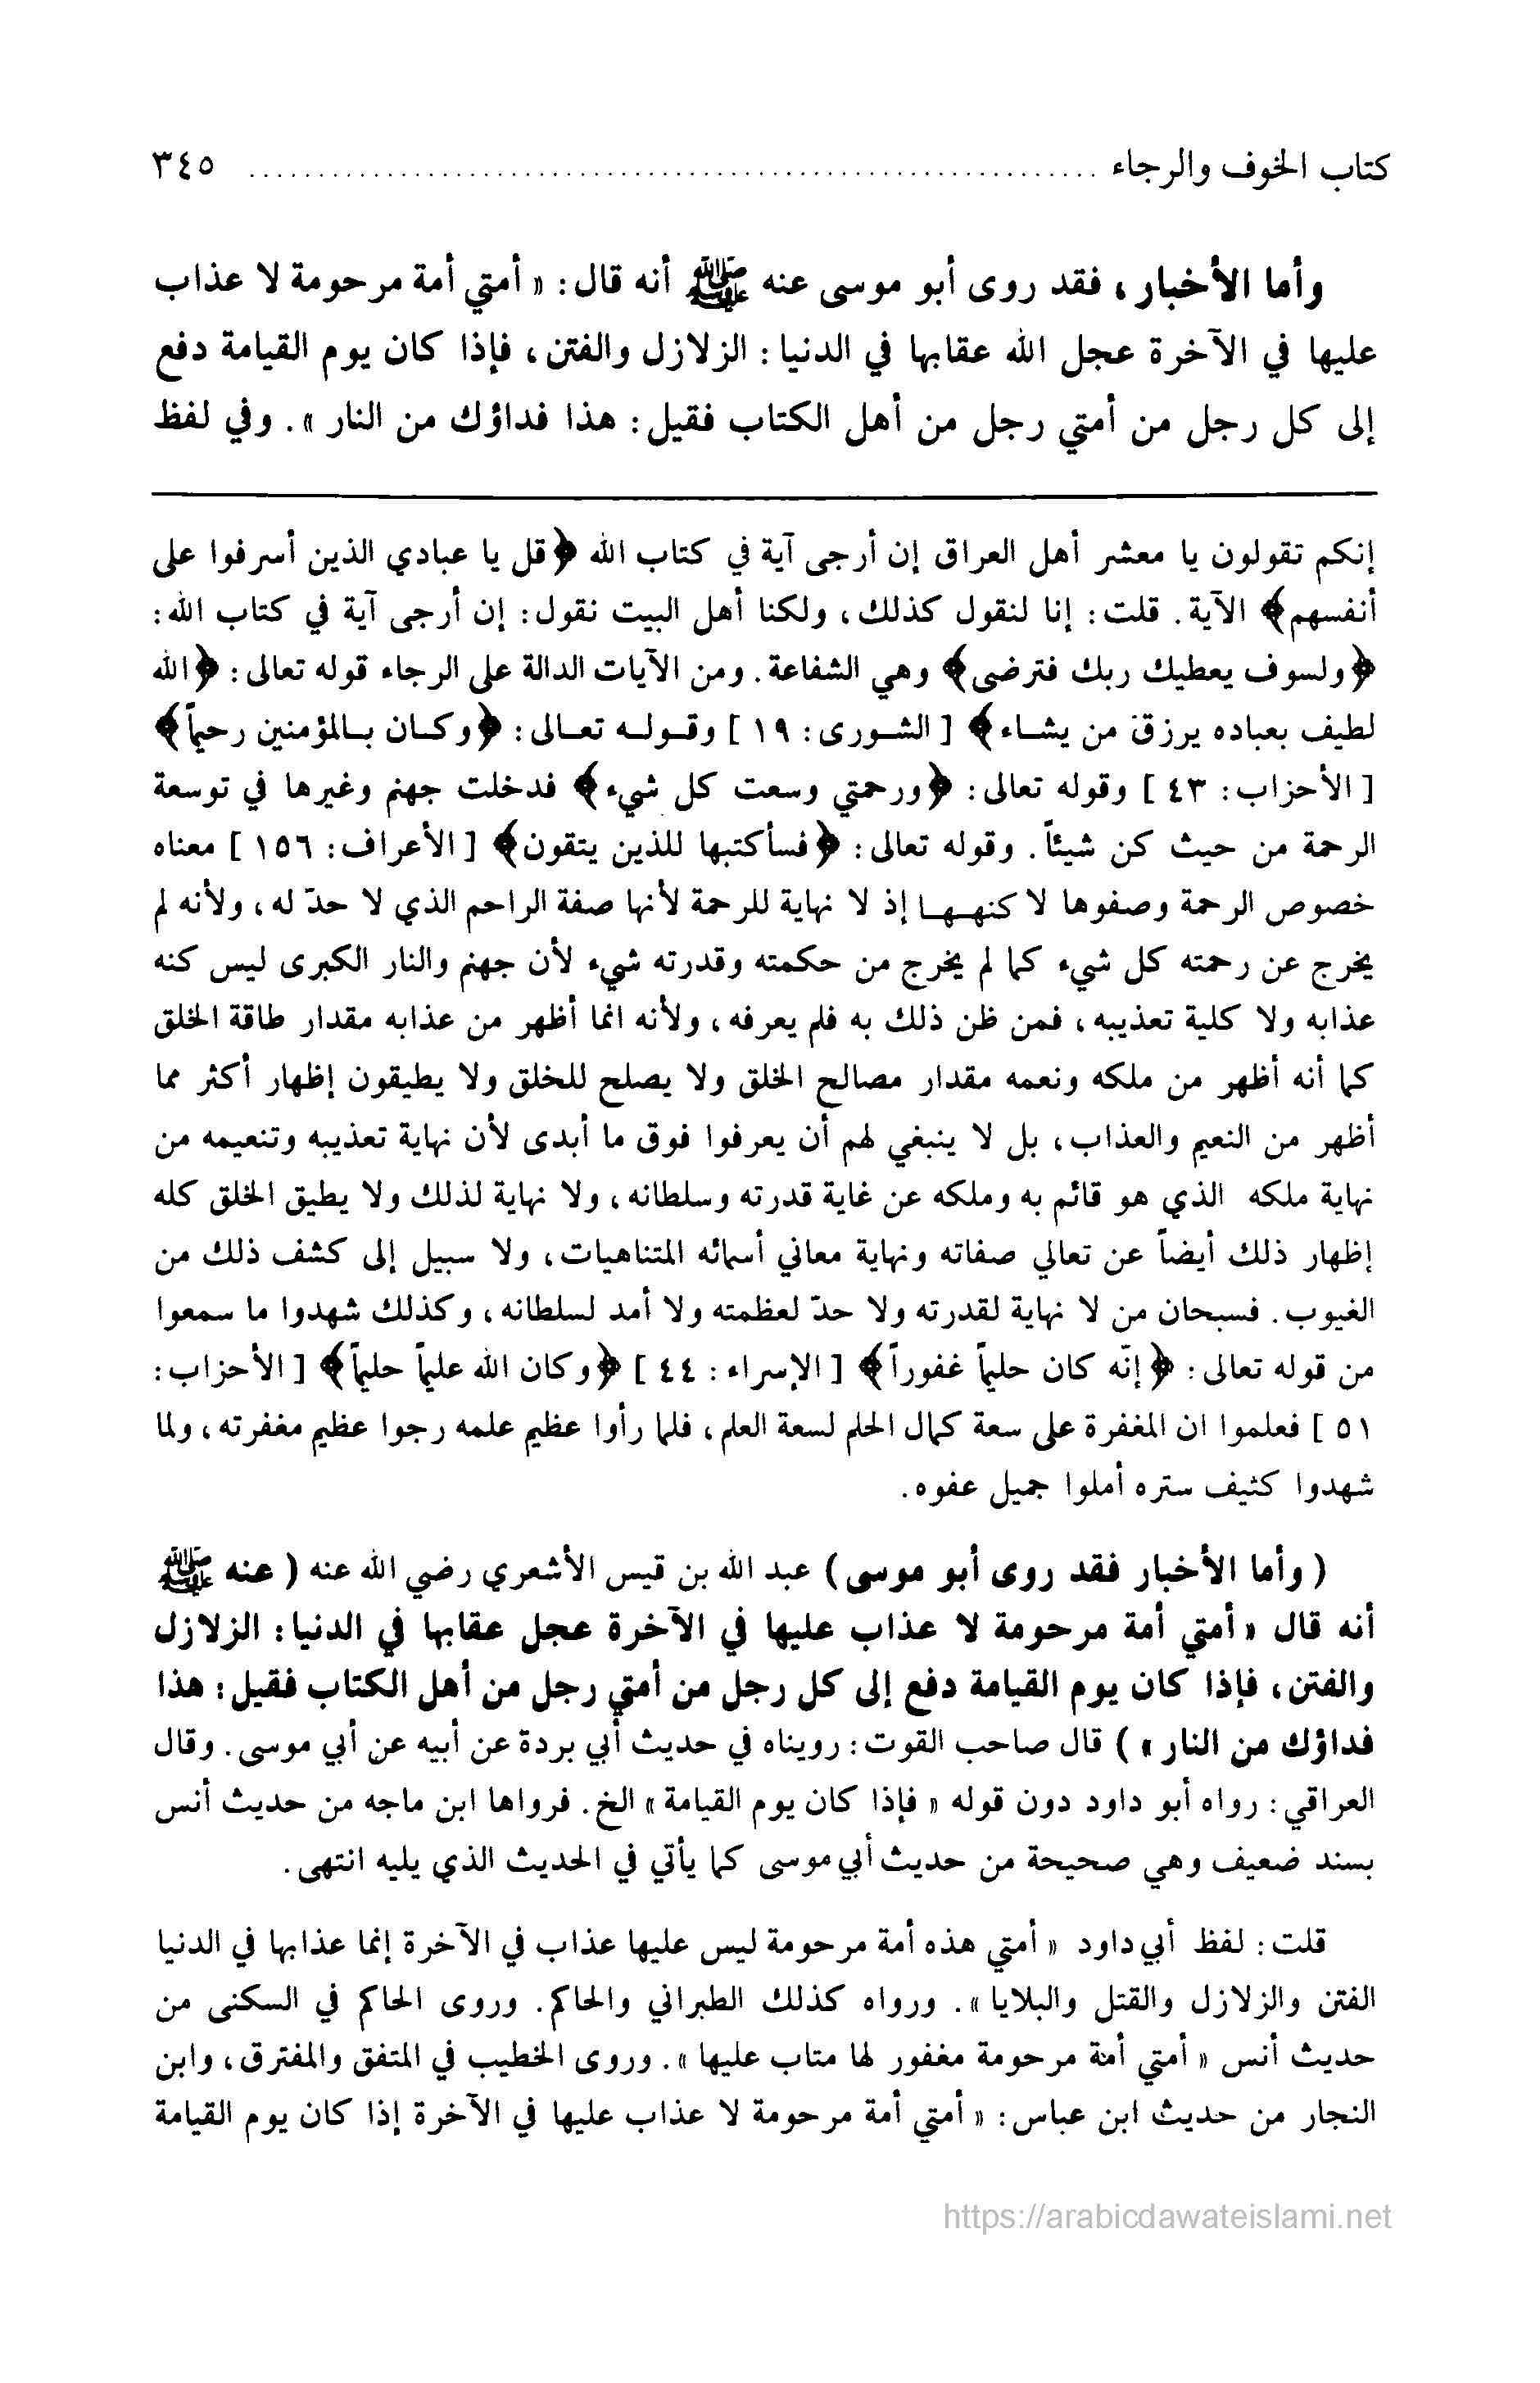 كتاب الخوف والرجاء ................................................................ ٣٤٥
وأما الأخبار، فقد روى أبو موسى عنه ﷺ أنه قال: « أمتي أمة مرحومة لا عذاب
عليها في الآخرة عجل الله عقابها في الدنيا: الزلازل والفتن، فإذا كان يوم القيامة دفع
إلى كل رجل من أمتي رجل من أهل الكتاب فقيل: هذا فداؤك من النار ». وفي لفظ
إنكم تقولون يا معشر أهل العراق إن أرجى آية في كتاب الله ﴿قل يا عبادي الذين أسرفوا على
أنفسهم﴾ الآية. قلت: إنا لنقول كذلك، ولكنا أهل البيت نقول: إن أرجى آية في كتاب الله:
﴿ولسوف يعطيك ربك فترضى﴾ وهي الشفاعة. ومن الآيات الدالة على الرجاء قوله تعالى: ﴿الله
لطيف بعباده يرزق من يشاء﴾ [ الشورى: ١٩ ] وقوله تعالى: ﴿وكان بالمؤمنين رحيماً﴾
[ الأحزاب: ٤٣ ] وقوله تعالى: ﴿ورحمتي وسعت كل شيء﴾ فدخلت جهنم وغيرها في توسعة
الرحمة من حيث كن شيئاً. وقوله تعالى: ﴿فسأكتبها للذين يتقون﴾ [ الأعراف: ١٥٦ ] معناه
خصوص الرحمة وصفوها لا كنهها إذ لا نهاية للرحمة لأنها صفة الراحم الذي لا حدّ له، ولأنه لم
يخرج عن رحمته كل شيء كما لم يخرج من حكمته وقدرته شيء لأن جهنم والنار الكبرى ليس كنه
عذابه ولا كلية تعذيبه، فمن ظن ذلك به فلم يعرفه، ولأنه انما أظهر من عذابه مقدار طاقة الخلق
كما أنه أظهر من ملكه ونعمه مقدار مصالح الخلق ولا يصلح للخلق ولا يطيقون إظهار أكثر مما
أظهر من النعيم والعذاب، بل لا ينبغي لهم أن يعرفوا فوق ما أبدى لأن نهاية تعذيبه وتنعيمه من
نهاية ملكه الذي هو قائم به وملكه عن غاية قدرته وسلطانه، ولا نهاية لذلك ولا يطيق الخلق كله
إظهار ذلك أيضاً عن تعالي صفاته ونهاية معاني أسمائه المتناهيات، ولا سبيل إلى كشف ذلك من
الغيوب. فسبحان من لا نهاية لقدرته ولا حدّ لعظمته ولا أمد لسلطانه، وكذلك شهدوا ما سمعوا
من قوله تعالى: ﴿إنّه كان حليماً غفوراً﴾ [ الإسراء: ٤٤ ] ﴿وكان الله عليماً حليماً﴾ [ الأحزاب:
٥١ ] فعلموا ان المغفرة على سعة كمال الحلم لسعة العلم، فلما رأوا عظيم علمه رجوا عظيم مغفرته، ولما
شهدوا كثيف ستره أملوا جميل عفوه.
( وأما الأخبار فقد روى أبو موسى) عبد الله بن قيس الأشعري رضي الله عنه ( عنه ﷺ
أنه قال « أمتي أمة مرحومة لا عذاب عليها في الآخرة عجل عقابها في الدنيا: الزلازل
والفتن، فإذا كان يوم القيامة دفع إلى كل رجل من أمتي رجل من أهل الكتاب فقيل: هذا
فداؤك من النار » ) قال صاحب القوت: رويناه في حديث أبي بردة عن أبيه عن أبي موسى. وقال
العراقي: رواه أبو داود دون قوله « فإذا كان يوم القيامة » الخ. فرواها ابن ماجه من حديث أنس
بسند ضعيف وهي صحيحة من حديث أبي موسى كما يأتي في الحديث الذي يليه انتهى.
قلت: لفظ أبي داود « أمتي هذه أمة مرحومة ليس عليها عذاب في الآخرة إنما عذابها في الدنيا
الفتن والزلازل والقتل والبلايا ». ورواه كذلك الطبراني والحاكم. وروى الحاكم في السكنى من
حديث أنس « أمتي أمة مرحومة مغفور لها متاب عليها ». وروى الخطيب في المتفق والمفترق، وابن
النجار من حديث ابن عباس: « أمتي أمة مرحومة لا عذاب عليها في الآخرة إذا كان يوم القيامة
https://arabicdawateislami.net